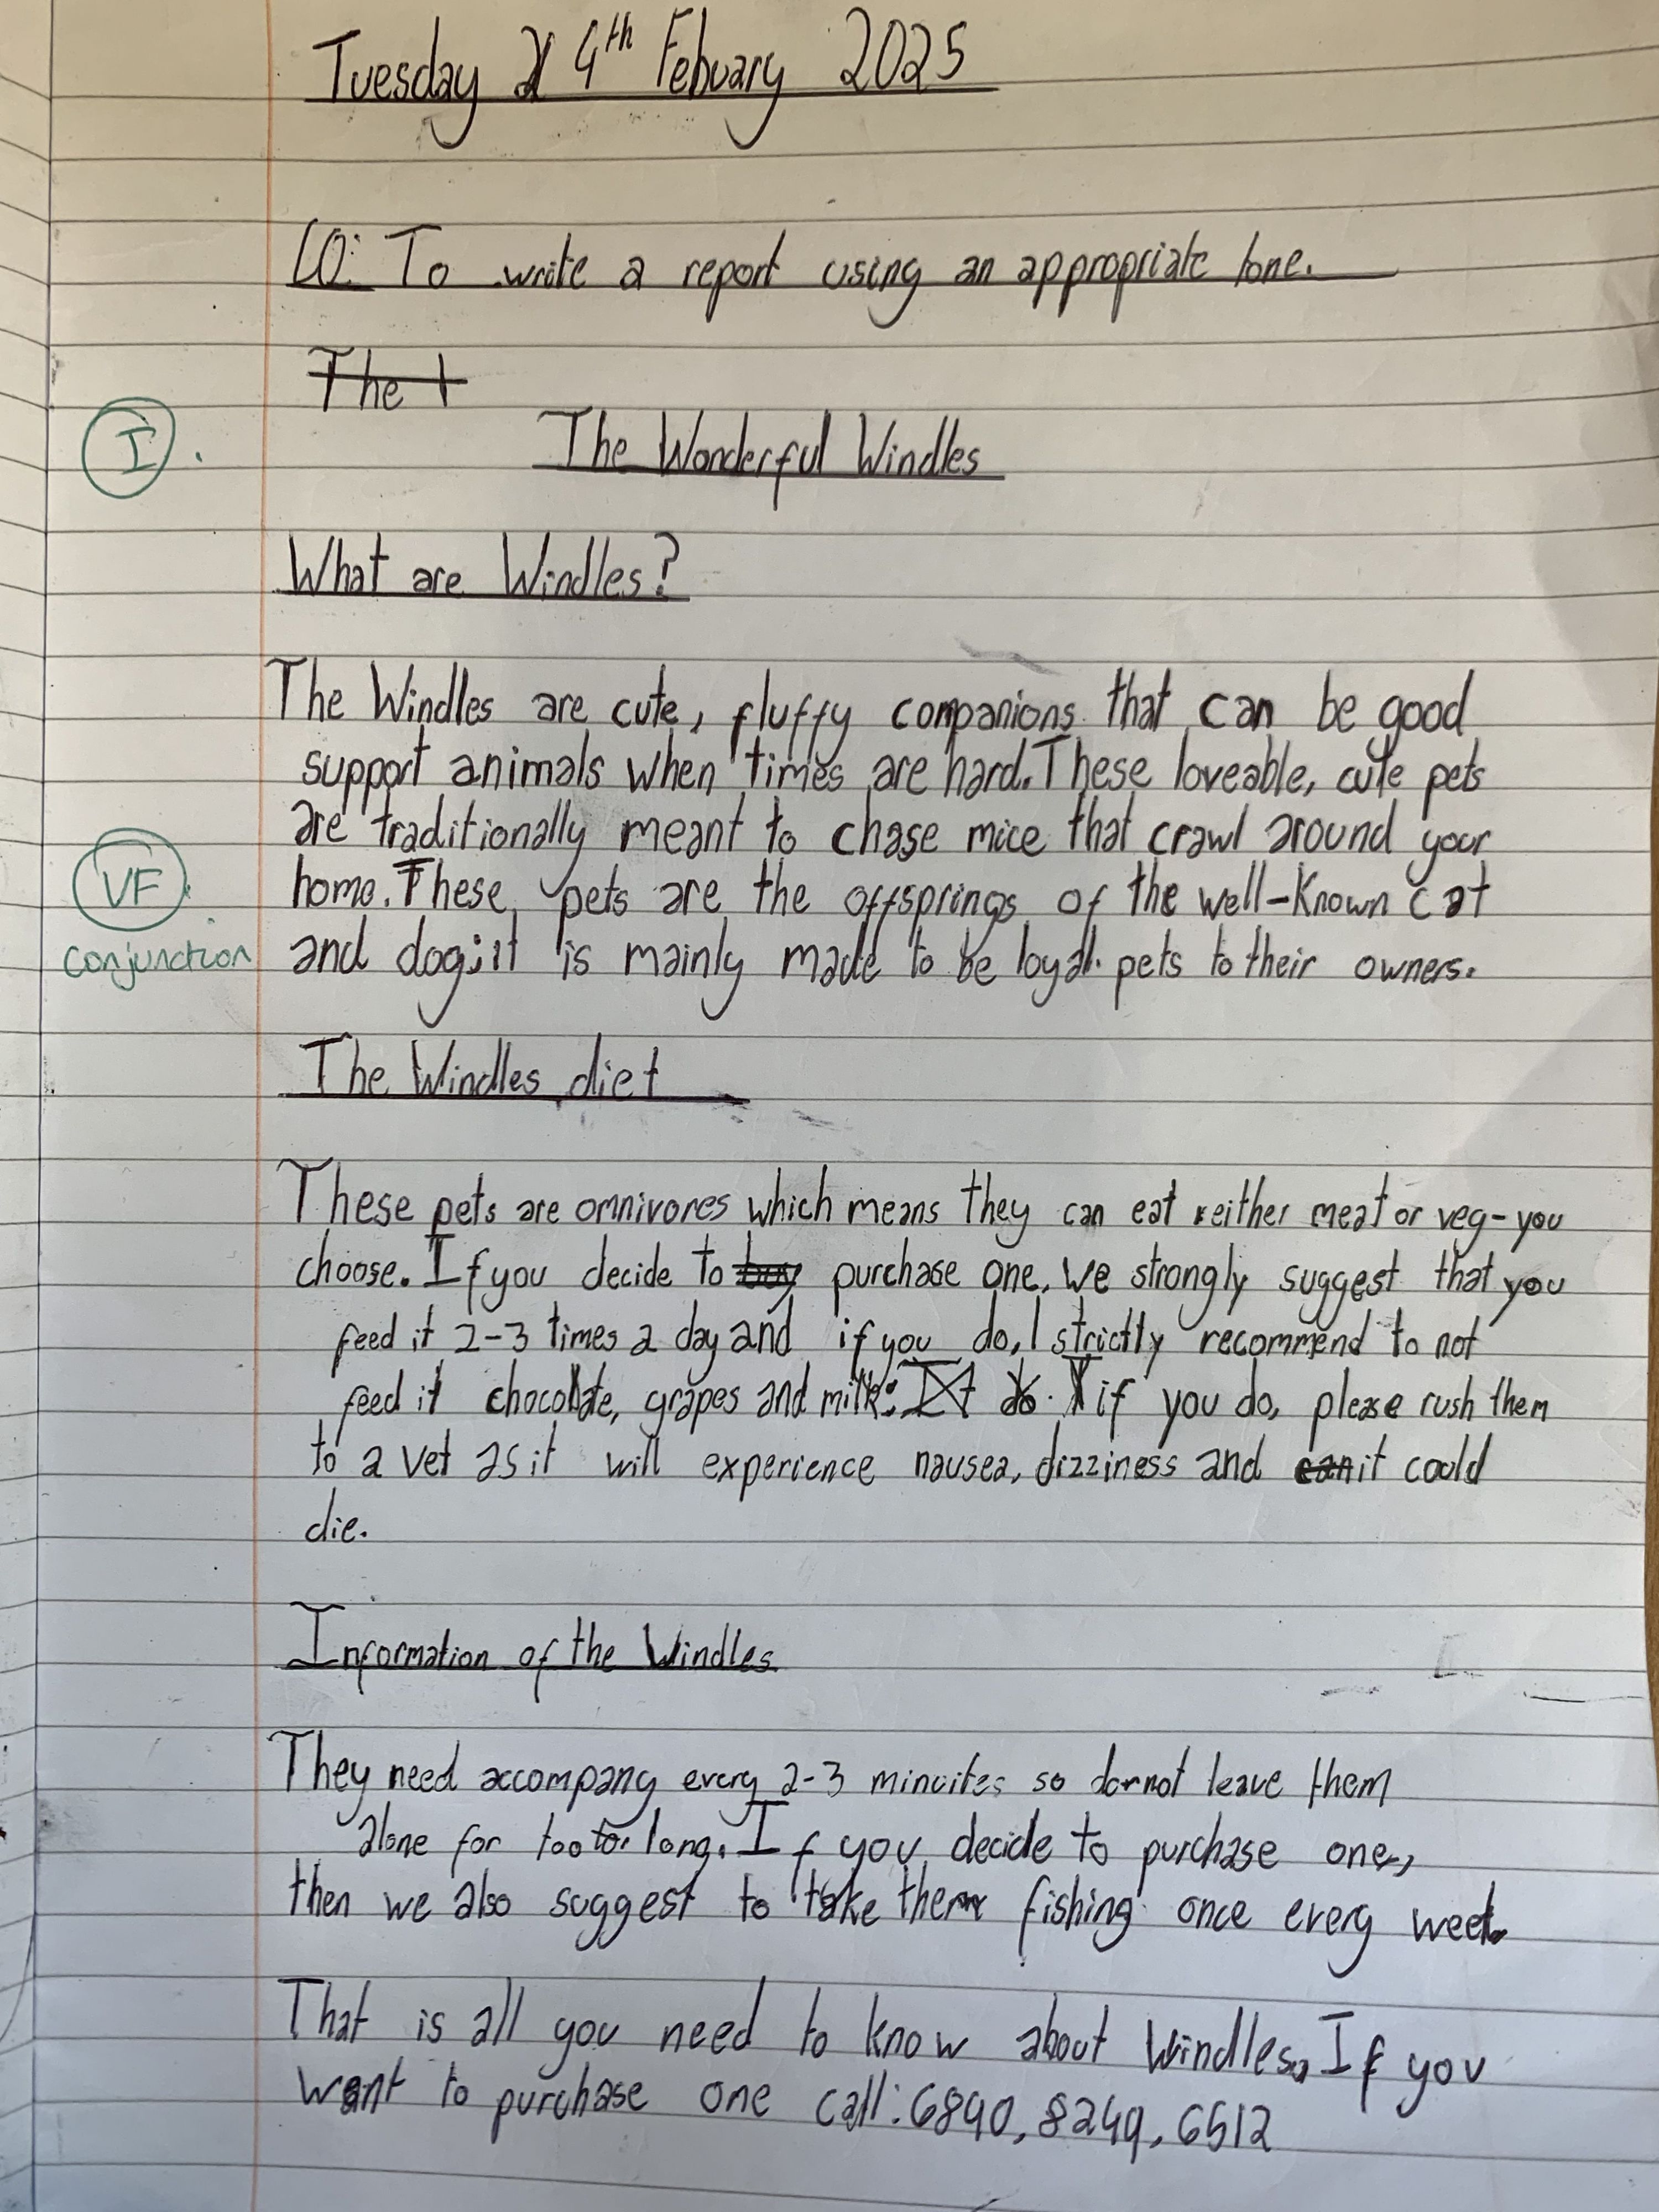 Tuesday 4th Febuary 2025
LO: To write a report using an appropriate tone.
The t
I.
The Wonderful Windles
What are Windles?
The Windles are cute, fluffy companions that can be good
support animals when times are hard. These loveable, cute pets
are traditionally meant to chase mice that crawl around your
home. These pets are the offsprings of the well-known cat
VF.
and dog; it is mainly made to be loyal pets to their owners.
conjunction
The Windles diet
These pets are omnivores which means they can eat either meat or veg-you
choose. If you decide to buy purchase one, we strongly suggest that you
feed it 2-3 times a day and if you do, I strictly recommend to not
feed it chocolate, grapes and milk; if you do, please rush them
to a vet as it will experience nausea, dizziness and can it could
die.
Information of the Windles
They need accompany every 2-3 minuites so do not leave them
alone for too to long. If you decide to purchase one,
then we also suggest to take them fishing once every week.
That is all you need to know about Windles, If you
want to purchase one call: 6840, 8249, 6512